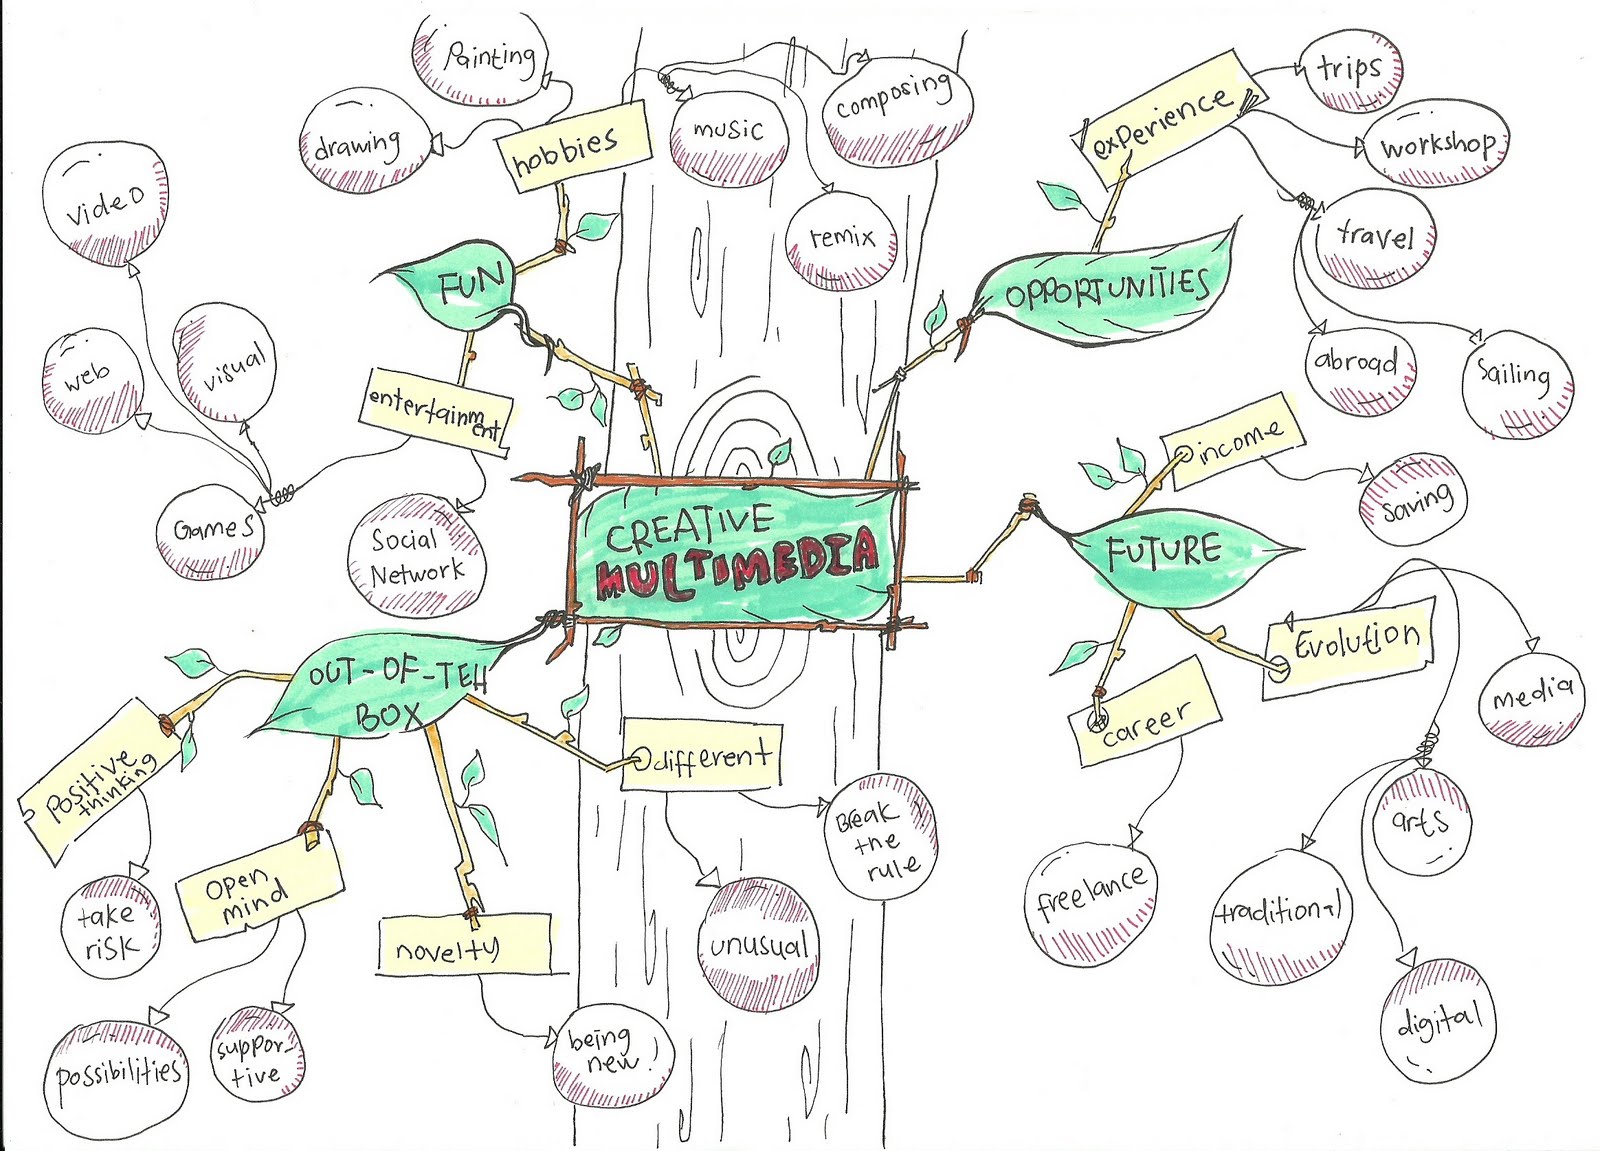 CREATIVE
MULTIMEDIA
FUN
hobbies
Painting
drawing
music
composing
remix
entertainm
ent
Games
video
web
visual
Social
Network
OPPORTUNITIES
experience
trips
workshop
travel
abroad
Sailing
FUTURE
income
Saving
Evolution
media
arts
traditional
digital
career
freelance
OUT-OF-TEH
BOX
Positive
thinking
take
risk
open
mind
possibilities
suppor-
tive
novelty
being
new!
different
Break
the
rule
unusual